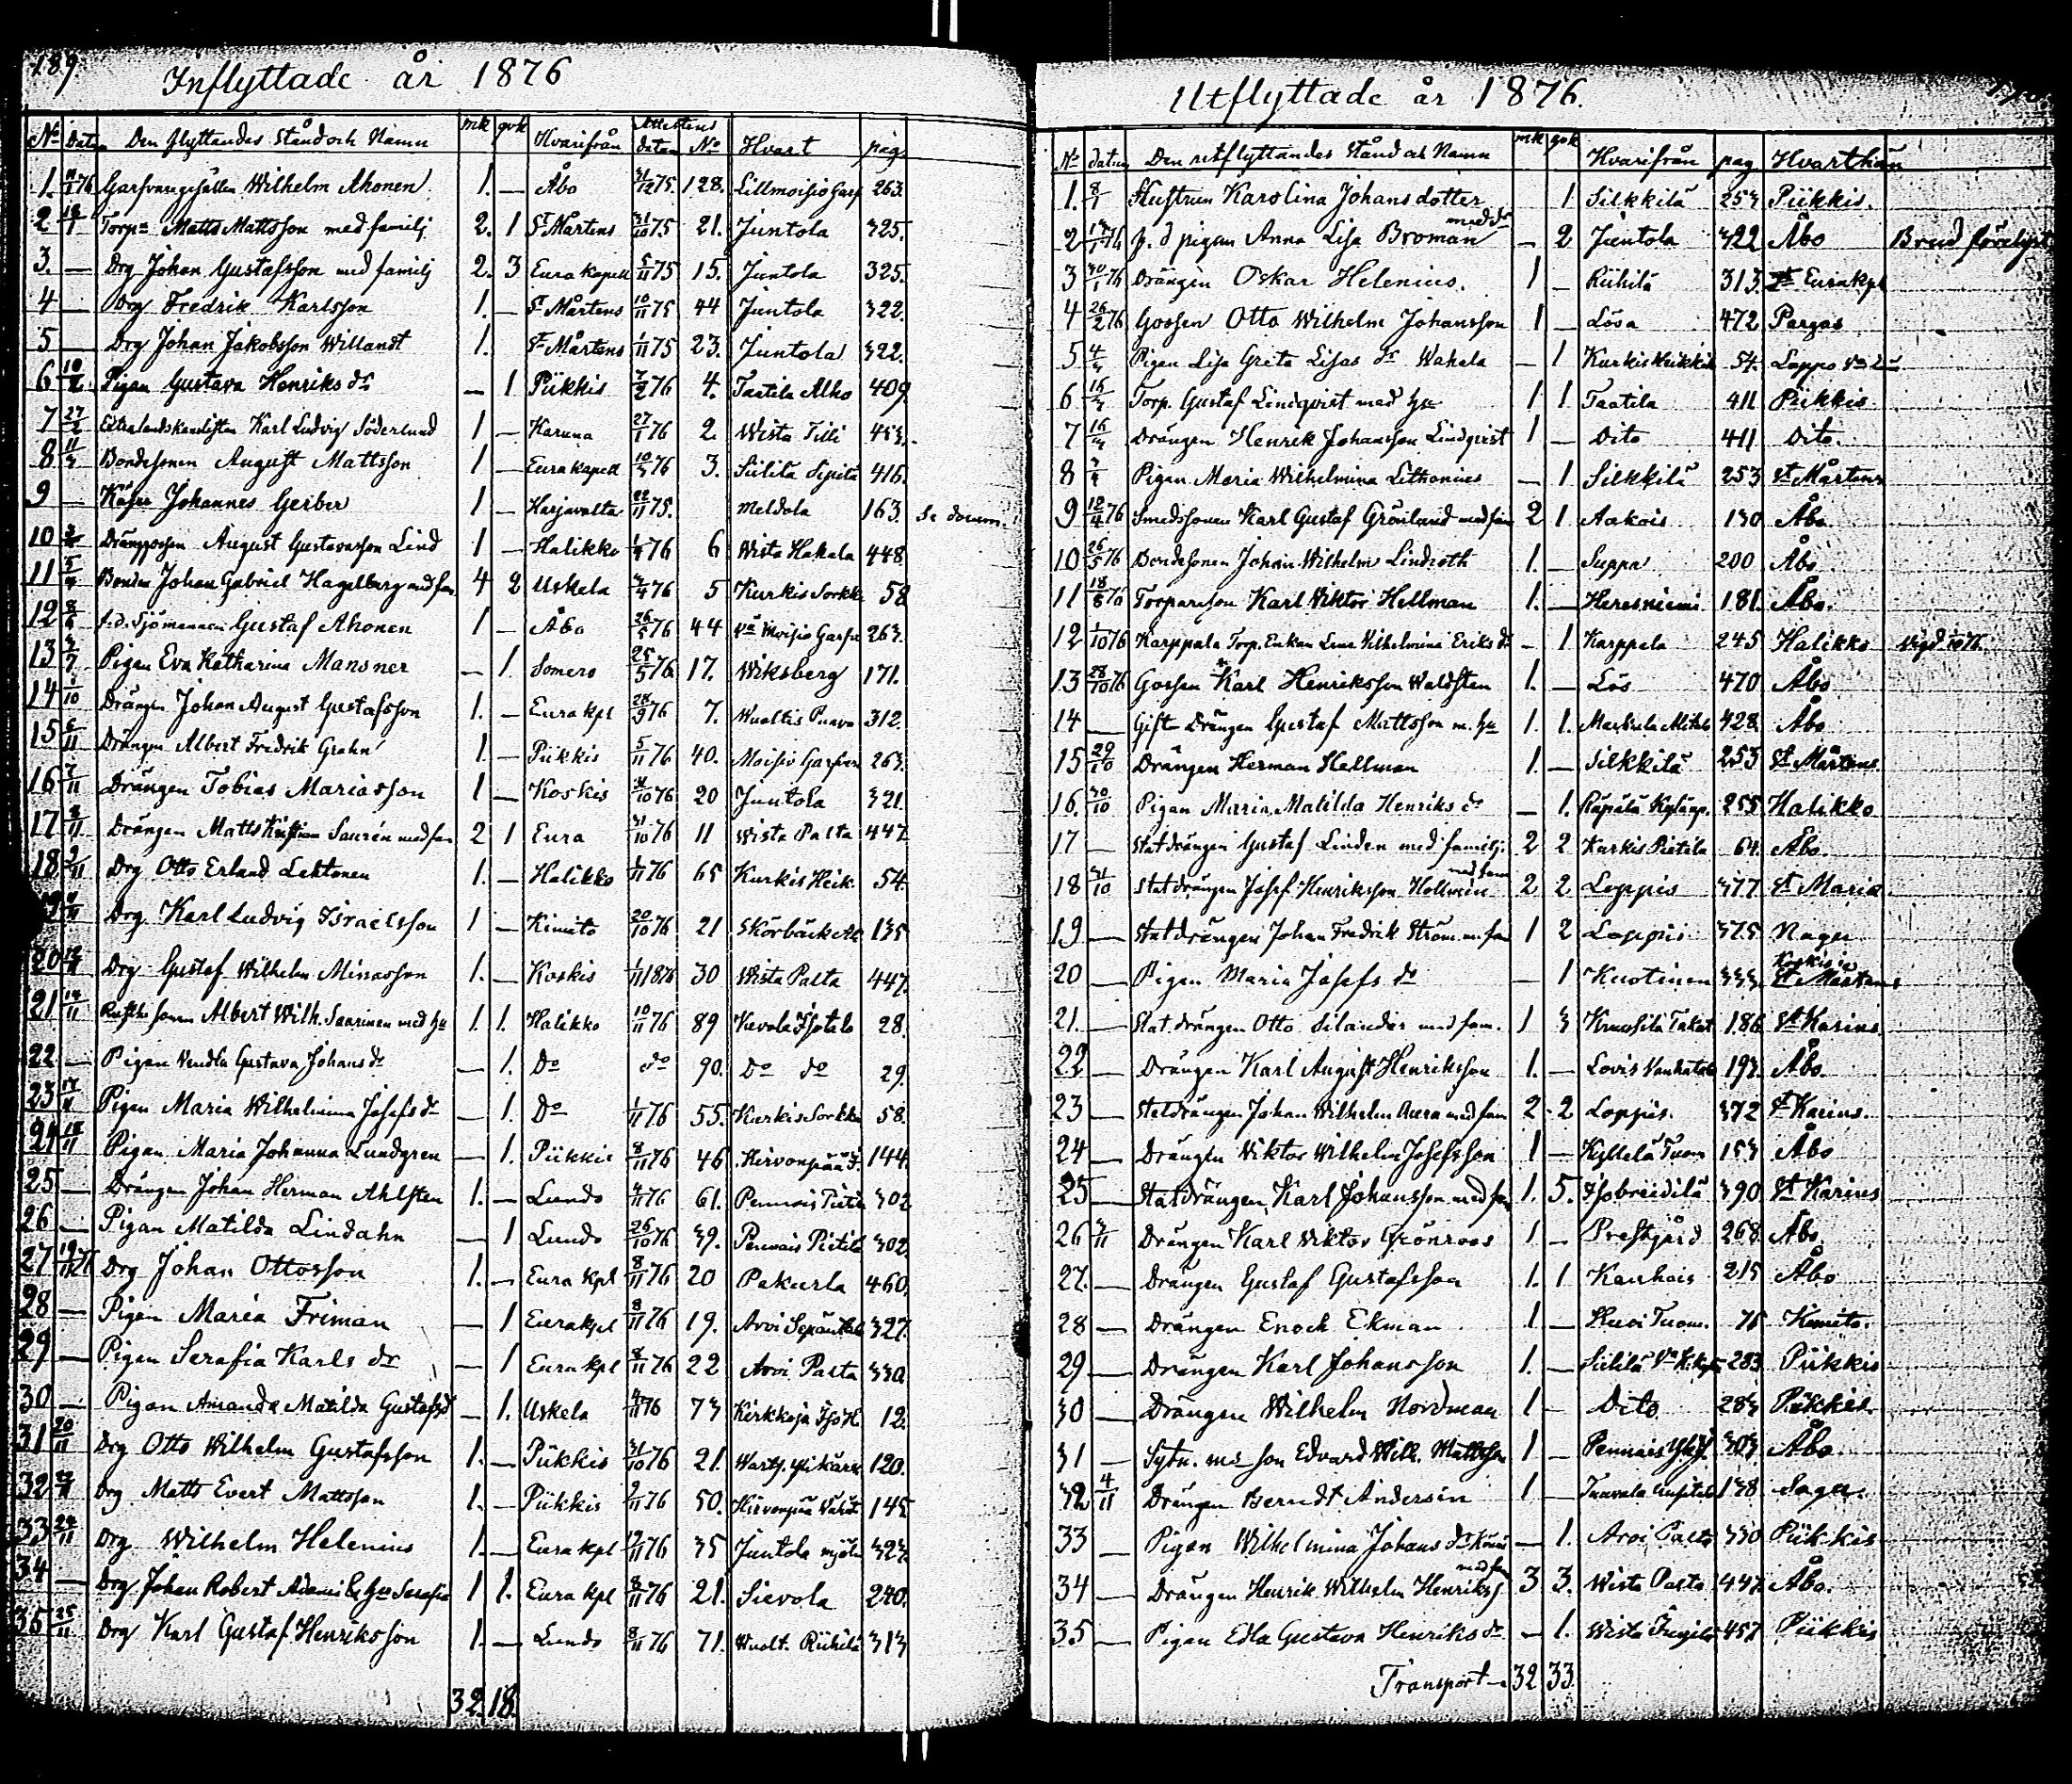 189
Inflyttade år 1876
No Datum Den flyttandes Stånd och Namn mk qvk Hvarifrån Attestens datum No Hvart pag.
1. 11/1 76 Garfvaregesällen Wilhelm Ahonen 1. — Åbo 31/12 75. 128. Lillmoisio Garf 263.
2 18/1 Torp. Matts Mattsson med familj 2. 1 St Mårtens 31/10 75 21. Juntola 325.
3. — Drg Johan Gustafsson med familj 2. 3 Eura Kapell 5/11 75 15. Juntola 325.
4 — Drg Fredrik Karlsson 1. — St Mårtens 10/11 75 44 Juntola 322.
5 — Drg Johan Jakobsson Willandt 1. St Mårtens 1/11 75 23. Juntola 322.
6 10/2 Pigan Gustava Henriks dr — 1 Piikkis 7/2 76 4. Taatila Alho 409
7 27/2 Karl Ludvig Söderlund 1 — Karuna 27/1 76 2. Wista Tilli 453.
8 11/3 Bondesonen August Mattsson 1 — Eura Kapell 10/3 76 3. Siilitä Sipilä 416.
9 — Johannes Gerber 1 — Harjavalta 22/11 75. Meldola 163.
10 August Gustavsson Lind 1 — Halikko 1/4 76 6 Wista Hakala 448
11 5/4 Bonden Johan Gabriel Hagelberg med fam. 4 2 Uskela 4/4 76 5 Kurkis Sorkki 58
12 8/6 f.d. Sjömannen Gustaf Ahonen 1 — Åbo 26/5 76 44 Moisio Garfv 263.
13 2/7 Pigan Eva Katharina Mansner — 1. Somero 25/5 76 17. Wiksberg 171.
14 1/10 Drängen Johan August Gustafsson 1. — Eura kpl 28/9 76 7. Wualtis Puava 312.
15 6/11 Drängen Albert Fredrik Grahn 1. — Piikkis 5/11 76 40. Moisio Garfvar 263.
16 7/11 Drängen Tobias Mariasson 1 — Koskis 31/10 76 20 Juntola 321
17 8/11 Drängen Matts Kristian Saurén med fam 2 1 Eura 31/10 76 11 Wista Palta 447
18 9/11 Drg Otto Erland Lehtonen 1. — Halikko 1/11 76 65 Kurkis Heik. 54.
19 Drg Karl Ludvig Israelsson 1 — Kimito 20/10 76 21 Skörbäck 135
20 Drg Gustaf Wilhelm Minasson 1. — Koskis 1/11 1876 30 Wista Palta 447.
21 14/11 Albert Wilh. Saarinen med hu 1. 1. Halikko 10/11 76 89 Kevola Isotalo 28.
22 — Pigan Vendla Gustava Johans dr — 1. Do do 90. Do do 29.
23 17/11 Pigan Maria Wilhelmina Josefs dr — 1. Do 1/11 76 55. Kurkis Sorkki 58.
24 18/11 Pigan Maria Johanna Lundgren — 1. Piikkis 8/11 76 46. Hirvonpää 144.
25 — Drängen Johan Herman Ahlsten 1. — Lundo 4/11 76 61. Pennois Pietilä 302
26 — Pigan Matilda Lindahn — 1 Lundo 26/10 76 39. Pennois Pietilä 302.
27 19/11 76 Drg Johan Ottosson 1. — Eura Kpl 8/11 76 20 Pakurla 460.
28 — Pigan Maria Friman — 1 Eura kpl 8/11 76 19. Arvi 327.
29 — Pigan Serafia Karls dr — 1 Eura kpl 8/11 76 22 Arvi Pasta 330
30 — Pigan Amanda Matilda Gustafsd — 1. Uskela 4/11 76 73 Kirkkoja 12.
31 20/11 Drg Otto Wilhelm Gustafsson 1. — Piikkis 31/10 76 21. 120.
32 Drg Matts Evert Mattsson 1. — Piikkis 2/11 76 50. Hirvonpää 145
33 24/11 Drg Wilhelm Helenius 1. — Eura kpl 19/11 76 35 Juntola mjöln 323
34 — Drg Johan Robert 1 1. Eura kpl 8/11 76 21. Sievola 240.
35 25/11 Drg Karl Gustaf Henriksson 1. — Lundo 8/11 76 71. Wualt. Riihilä 313
32. 18.
Utflyttade år 1876.
No datum Den utflyttandes Stånd och Namn mk qvk Hvarifrån pag Hvarthän
1. 8/1 Hustrun Karolina Johansdotter 1 Silkkilä 253 Piikkis.
2 76 f. d pigan Anna Lisa Broman med dr — 2 Juntola 322 Åbo
3 30/1 76 Drängen Oskar Helenius. 1 — Riihilä 313. Eura kpl
4 26/2 76 Gossen Otto Wilhelm Johansson 1 — Lösa 472 Pargas
5 Pigan Lisa Greta Lisas dr Wahala — 1 Kurkis 54. Loppo
6 16/3 Torp. Gustaf Lindqvist med hu 1 1 Taatila 411 Piikkis
7 16/3 Drängen Henrik Johansson Lindqvist 1 — Dito 411 Dito.
8 Pigan Maria Wilhelmina Lethonius — 1 Silkkilä 253 St Mårtens
9 12/4 76 Smedssonen Karl Gustaf Grönlund med fam 2 1 Aakois 130 Åbo
10 26/5 76 Bondesonen Johan Wilhelm Lindroth 1. — Suppa 200 Åbo
11 18/8 76 Torpareson Karl Viktor Hellman 1. — Heresniemi 181. Åbo.
12 1/10 76 Karppala Torp. Enkan Lena Wilhelmina Eriks dr — 1 Karppala 245 Halikko
13 28/10 76 Gossen Karl Henriksson Waldsten 1. — Lös 470 Åbo
14 — Gift Drängen Gustaf Mattsson m. hu 1. 1. Markula 428 Åbo
15 29/10 Drängen Herman Hellman 1. — Silkkilä 253 St Mårtens
16. 30/10 Pigan Maria Matilda Henriks dr — 1. 255 Halikko
17 — Statdrängen Gustaf Linden med familj. 2 2 Kurkis Pietilä 64. Åbo.
18 31/10 Statdrängen Josef Henriksson Hollmén med fam 2 2 Loppis 377 St Maria
19 — Statdrängen Johan Fredrik Ström m. fam 1 2 Loppis 375 Nagu
20 — Pigan Maria Josefs dr — 1 Kuotinen 333 Koskis St Mårtens
21. — Stat.drängen Otto Silander med fam. 1 3 186 St Karins
22 — Drängen Karl August Henriksson 1. — Lovis Vanhatalo 193. Åbo.
23 — Statdrängen Johan Wilhelm Aura med fam 2 2 Loppis. 372 St Karins.
24 — Drängen Viktor Wilhelm Josefsson 1 — Kyllelä Tuom 153 Åbo
25 — Statdrängen Karl Johansson med fam 1. 5. Isobreidilä 390 St Karins
26 3/11 Drängen Karl Viktor Grönroos 1 — Prestgård 268. Åbo.
27. — Drängen Gustaf Gustafsson 1. 1 Kanhais 215 Åbo
28 — Drängen Enoch Ekman 1. — Huoi Tuom. 76 Kimito.
29 — Drängen Karl Johansson 1. — Siilitä 283 Piikkis
30 — Drängen Wilhelm Nordman 1 — Dito 283 Piikkis
31 — son Edvard Wilh. Mattsson 1 — Pennais 303 Åbo.
32 4/11 Drängen Berndt Andersin 1 — Tuavala 138 Sagu.
33 — Pigan Wilhelmina Johans dr — 1. Arvi Pasta 330 Piikkis
34 — Drängen Henrik Wilhelm Henrikss med fam 3 3. Wista Pasta 447 Åbo.
35 — Pigan Edla Gustava Henriks dr — 1. Wista 457 Piikkis
Transport 32 33.